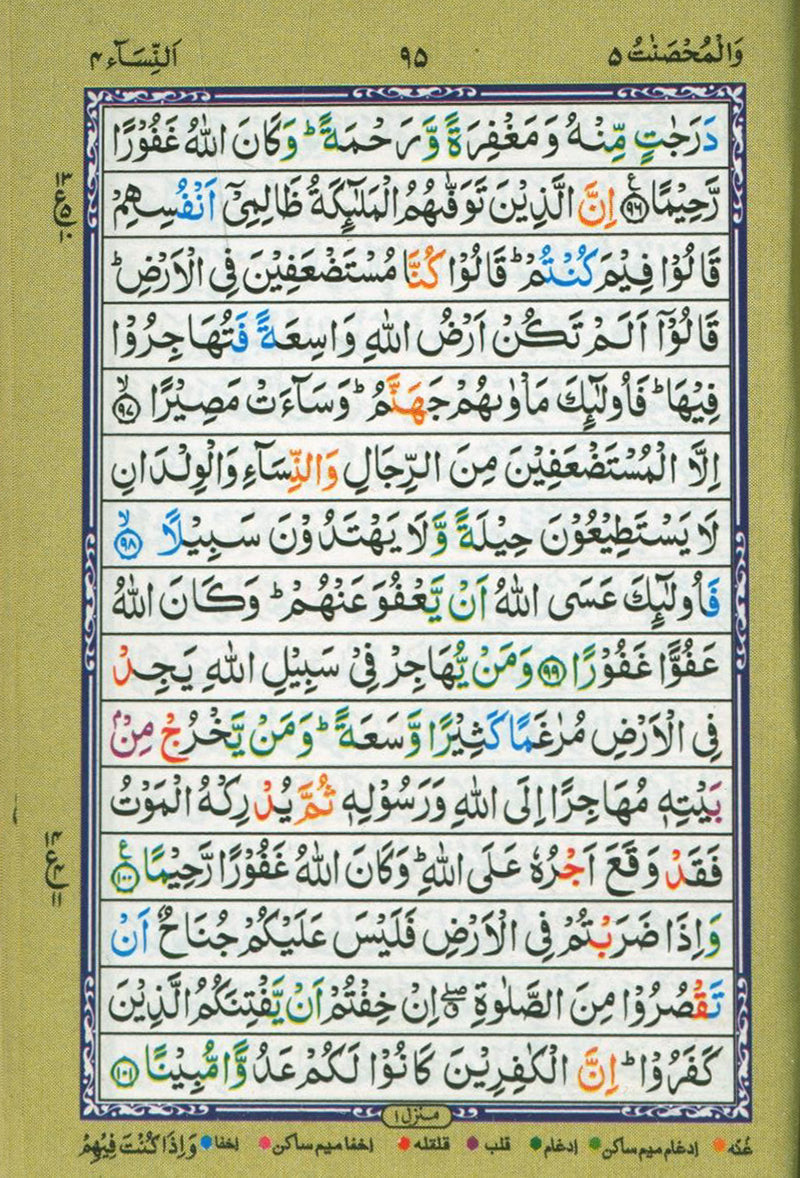 وَالْمُحْصَنٰتُ ٥ ٩٥ اَلنِّسَآء ٤
دَرَجٰتٍ مِّنْهُ وَ مَغْفِرَةً وَّ رَحْمَةً ؕ وَ كَانَ اللّٰهُ غَفُوْرًا
رَّحِيْمًا ﴿٩٦﴾ ع اِنَّ الَّذِيْنَ تَوَفّٰىهُمُ الْمَلٰٓئِكَةُ ظَالِمِيْۤ اَنْفُسِهِمْ
١٣
ع ٥
١٠
قَالُوْا فِيْمَ كُنْتُمْ ؕ قَالُوْا كُنَّا مُسْتَضْعَفِيْنَ فِي الْاَرْضِ ؕ
قَالُوْۤا اَلَمْ تَكُنْ اَرْضُ اللّٰهِ وَاسِعَةً فَتُهَاجِرُوْا
فِيْهَا ؕ فَاُولٰٓئِكَ مَاْوٰىهُمْ جَهَنَّمُ ؕ وَسَآءَتْ مَصِيْرًا ﴿٩٧﴾ ۙ
اِلَّا الْمُسْتَضْعَفِيْنَ مِنَ الرِّجَالِ وَالنِّسَآءِ وَالْوِلْدَانِ
لَا يَسْتَطِيْعُوْنَ حِيْلَةً وَّ لَا يَهْتَدُوْنَ سَبِيْلًا ﴿٩٨﴾ ۙ
فَاُولٰٓئِكَ عَسَى اللّٰهُ اَنْ يَّعْفُوَ عَنْهُمْ ؕ وَ كَانَ اللّٰهُ
عَفُوًّا غَفُوْرًا ﴿٩٩﴾ وَمَنْ يُّهَاجِرْ فِيْ سَبِيْلِ اللّٰهِ يَجِدْ
فِي الْاَرْضِ مُرٰغَمًا كَثِيْرًا وَّسَعَةً ؕ وَمَنْ يَّخْرُجْ مِنْۢ
بَيْتِهٖ مُهَاجِرًا اِلَى اللّٰهِ وَرَسُوْلِهٖ ثُمَّ يُدْرِكْهُ الْمَوْتُ
فَقَدْ وَقَعَ اَجْرُهٗ عَلَى اللّٰهِ ؕ وَكَانَ اللّٰهُ غَفُوْرًا رَّحِيْمًا ﴿١٠٠﴾ ع
١٤
ع ٤
١١
وَاِذَا ضَرَبْتُمْ فِي الْاَرْضِ فَلَيْسَ عَلَيْكُمْ جُنَاحٌ اَنْ
تَقْصُرُوْا مِنَ الصَّلٰوةِ ۖ اِنْ خِفْتُمْ اَنْ يَّفْتِنَكُمُ الَّذِيْنَ
كَفَرُوْا ؕ اِنَّ الْكٰفِرِيْنَ كَانُوْا لَكُمْ عَدُوًّا مُّبِيْنًا ﴿١٠١﴾
منزل ١
غُنّه ادغام میم ساکن ادغام قلب قلقله اخفا میم ساکن اخفا وَاِذَا كُنْتَ فِيْهِمْ